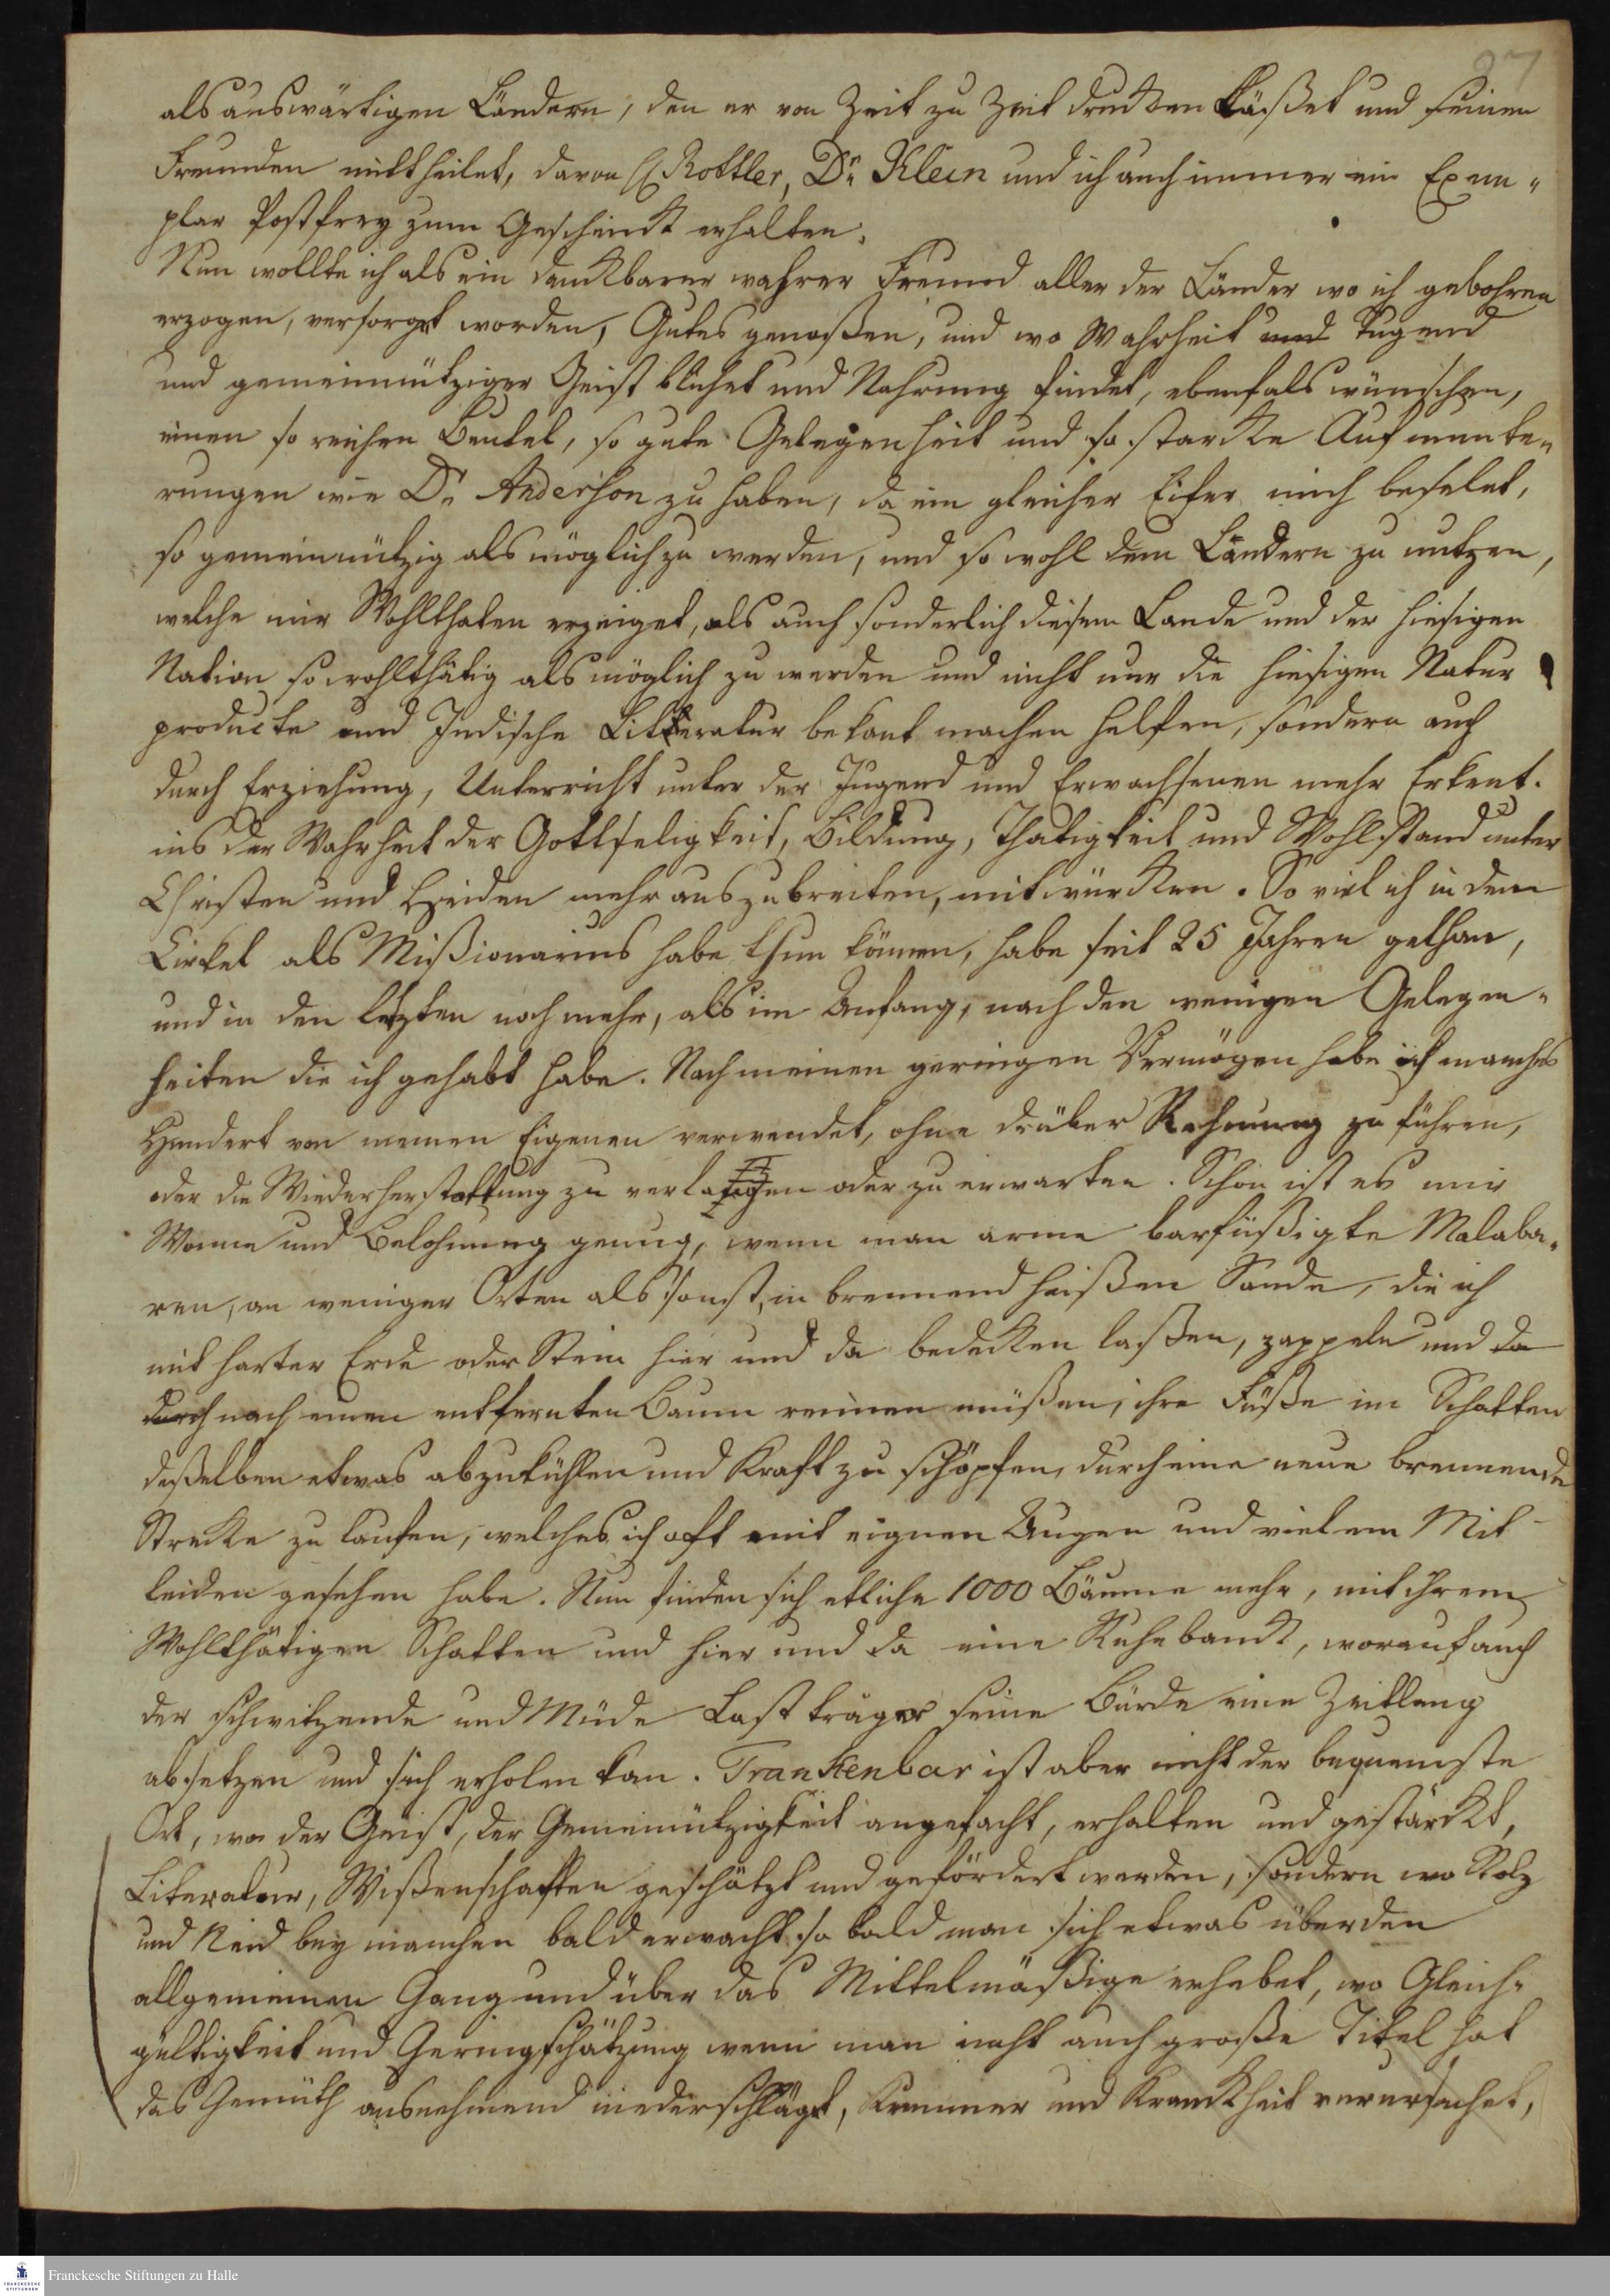 97
als auswärtigen Ländern, den er von Zeit zu Zeit drucken läßet und seinen
Freunden mittheilet, davon H Rottler, Dr. Klein und ich auch immer ein Exem-
plar Postfrey zum Geschenck erhalten.
Nun wollte ich als ein danckbarer wahrer Freund aller der Länder wo ich gebohren
erzogen, versorget worden, Gutes genoßen, und wo Wahrheit und Tugend
und gemeinnütziger Geist blühet und Nahrung findet, ebenfals wünschen,
einen so reichen Beutel, so gute Gelegenheit und so starcke Aufmunte-
rungen wie Dr. Anderson zu haben, da ein gleicher Eifer mich beselet,
so gemeinnützig als möglich zu werden, und so wohl dem Ländern zu nutzen,
welche mir Wohlthaten erzeiget, als auch sonderlich diesem Lande und der hiesigen
Nation so wohlthätig als möglich zu werden und nicht nur die hiesigen Natur
producte und Indische Litteratur bekant machen helfen, sondern auch
durch Erziehung, Unterricht unter der Jugend und Erwachsenen mehr Erkent-
nis der Wahrheit der Gottseligkeit, Bildung, Thätigkeit und Wohlstand unter
Christen und Heiden mehr auszubreiten, mitwürcken. So viel ich in dem
Cirkel als Mißionarius habe thun können, habe seit 25 Jahren gethan,
und in den letzten noch mehr, als im Anfang, nach den wenigen Gelegen-
heiten die ich gehabt habe. Nach meinen geringen Vermögen habe ich manches
Hundert von meinen Eigenen verwendet, ohne drüber Rechnung zu führen,
oder die Wiederherstattung zu verlangen oder zu erwarten. Schon ist es mir
Wonne und Belohnung genug, wenn man arme barfüßigte Malaba-
ren, an weniger Orten als sonst, in brennend heißen Sande, die ich
mit harter Erde oder Stein hier und da bedecken laßen, zappeln und da
durch nach einen entfernten Baum rennen müßen, ihre Füße im Schatten
deßelben etwas abzukühlen und Kraft zu schöpfen, durch eine neue brennende
Strecke zu laufen, welches ich oft mit eignen Augen und vielem Mit-
leiden gesehen habe. Nun finden sich etliche 1000 Bäume mehr, mit ihrem
Wohlthätigen Schatten und hier und da eine Ruhebanck, worauf auch
der schwitzende und Müde Lastträger seine Bürde eine Zeitlang
absetzen und sich erholen kan. Trankenbar ist aber nicht der bequemste
Ort, wo der Geist, der Gemeinnützigkeit angefacht, erhalten und gestärckt,
Literatur, Wißenschaften geschätzt und gefördert werden, sondern wo Stolz
und Neid bey manchen bald erwacht so bald man sich etwas über den
allgemeinen Gang und über das Mittelmäßige erhebet, wo Gleich-
gültigkeit und Geringschätzung wenn man nicht auch große Titel hat
das Gemüth ausnehmend niederschlägt, Kummer und Kranckheit verursachet,
FRANCKESCHE STIFTUNGEN
Franckesche Stiftungen zu Halle